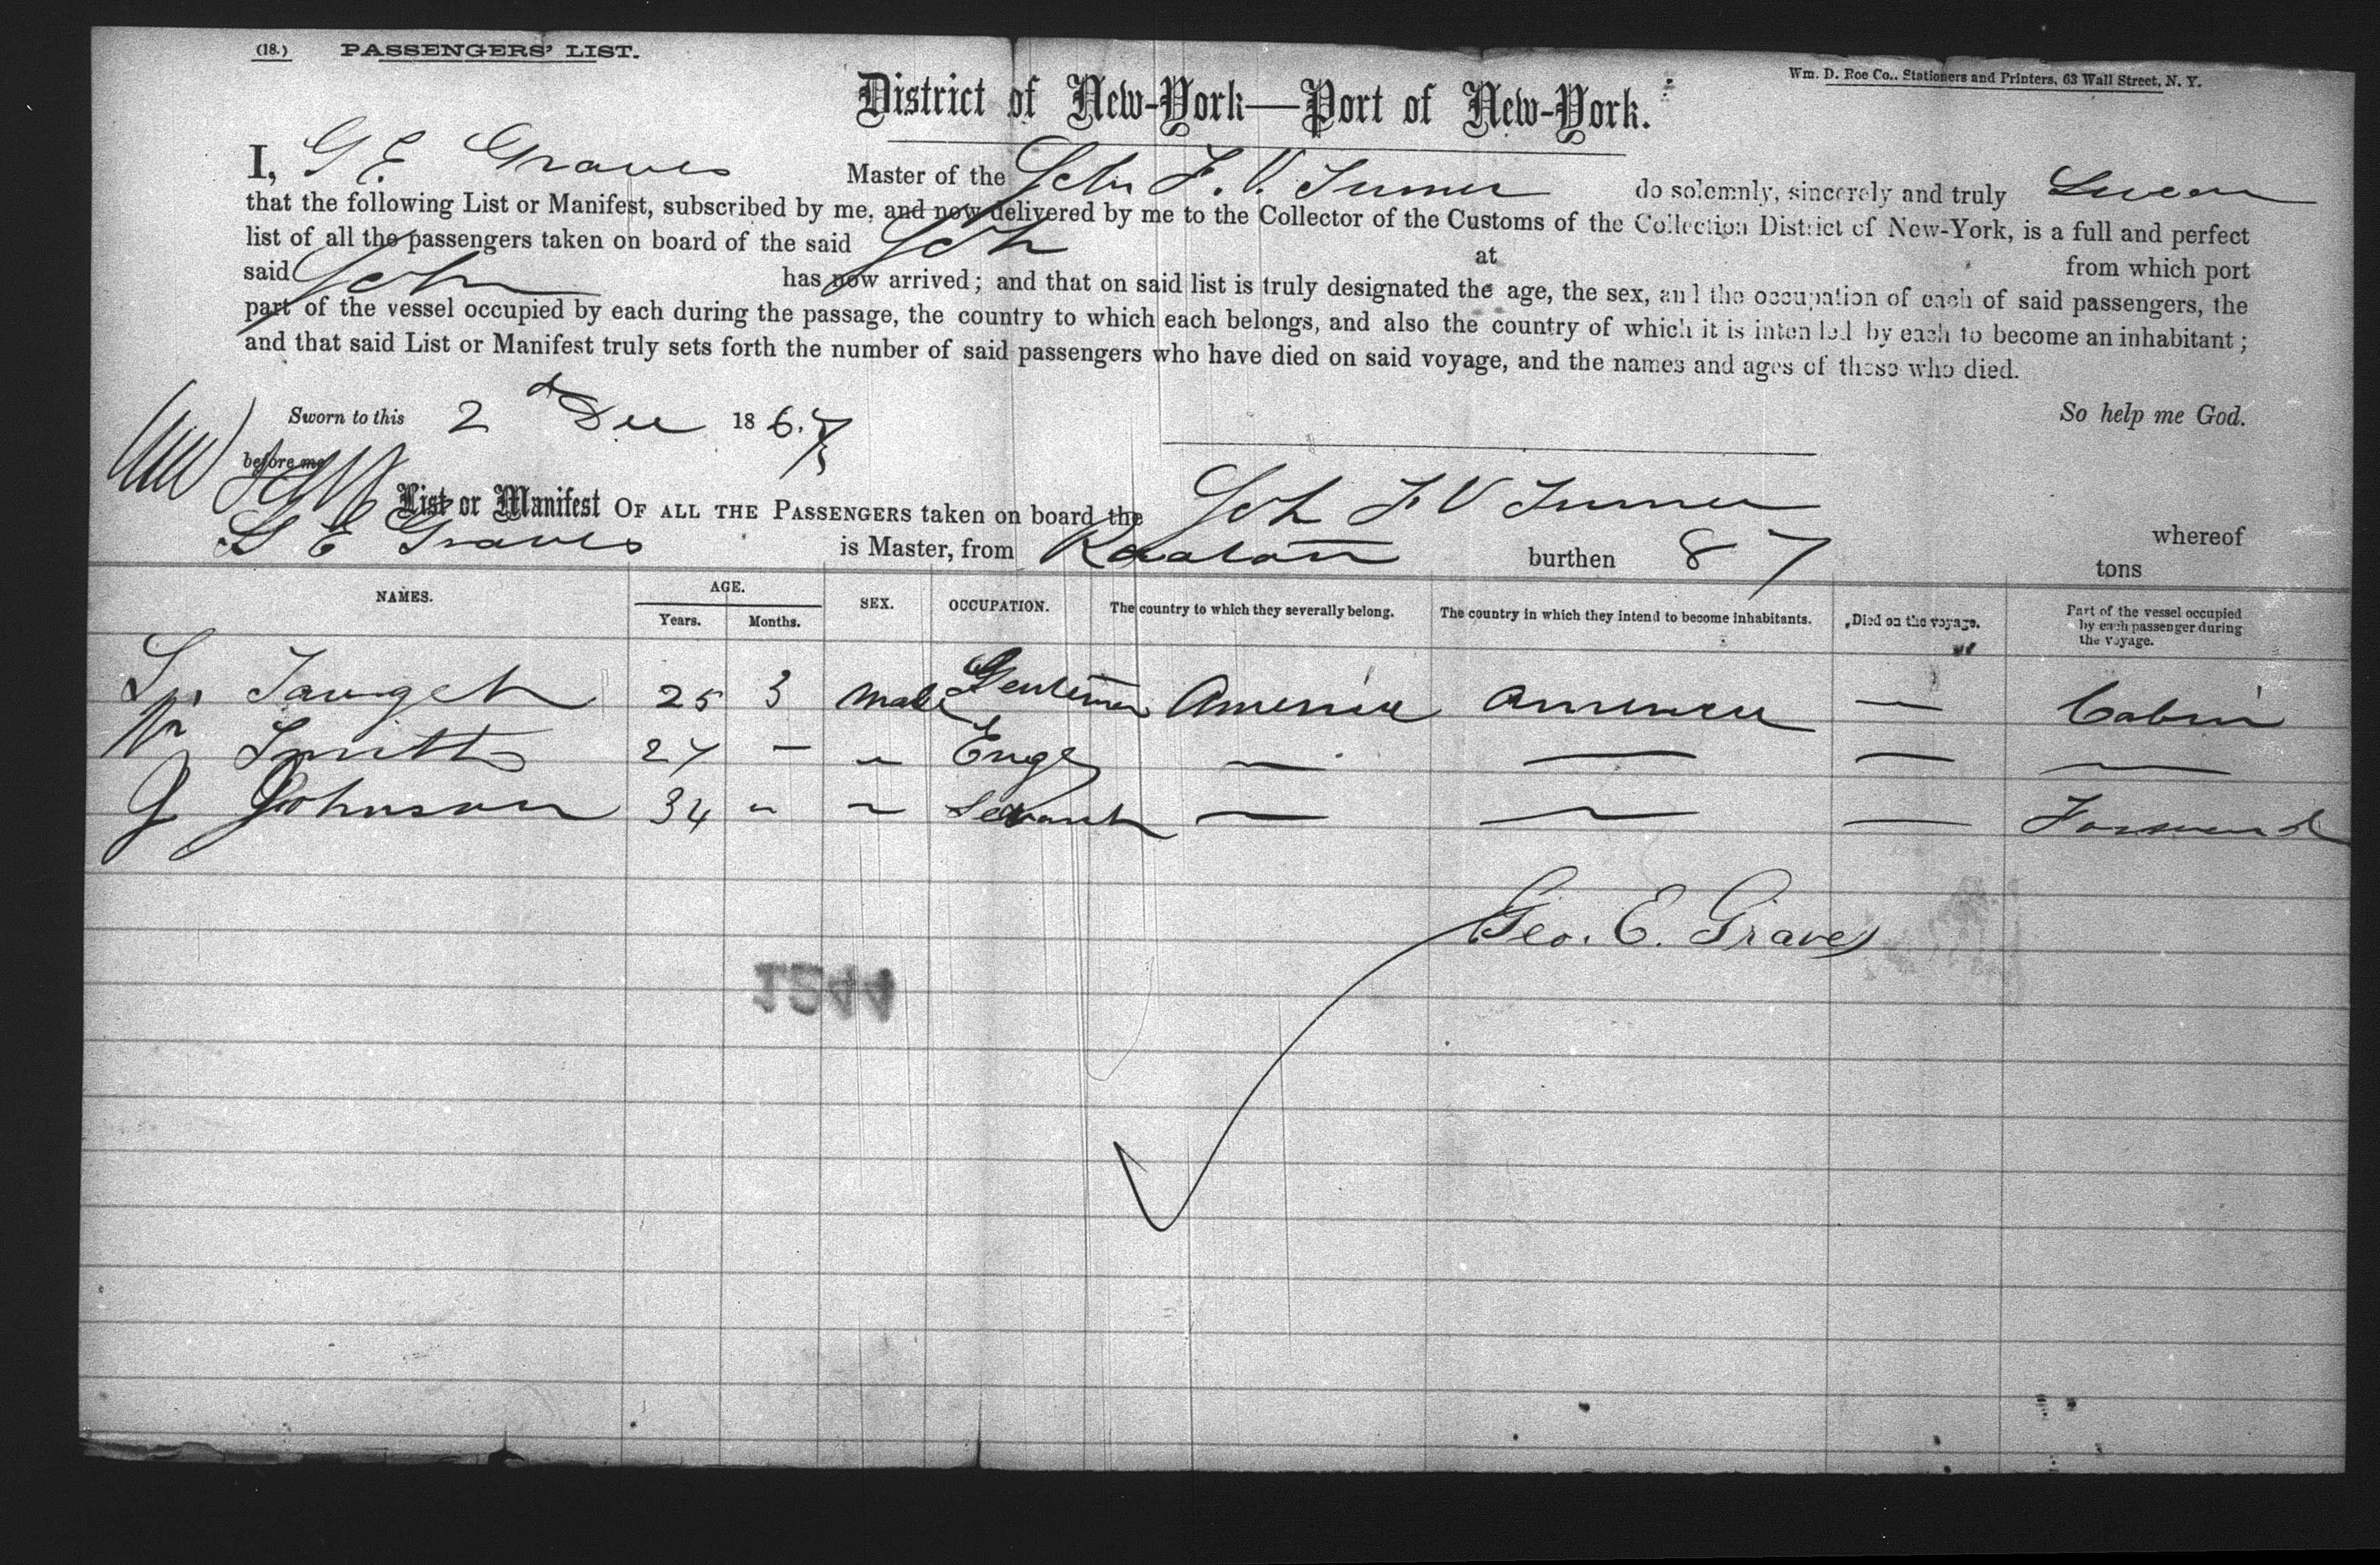 (18.) PASSENGERS' LIST.
Wm. D. Roe Co., Stationers and Printers, 63 Wall Street, N. Y.
District of New-York—Port of New-York.
I, G E Graves Master of the Schr F. V. Turner do solemnly, sincerely and truly Swear
that the following List or Manifest, subscribed by me, and now delivered by me to the Collector of the Customs of the Collection District of New-York, is a full and perfect
list of all the passengers taken on board of the said Sch at from which port
said Schr has now arrived; and that on said list is truly designated the age, the sex, and the occupation of each of said passengers, the
part of the vessel occupied by each during the passage, the country to which each belongs, and also the country of which it is intended by each to become an inhabitant;
and that said List or Manifest truly sets forth the number of said passengers who have died on said voyage, and the names and ages of those who died.
Sworn to this 2d Dec 1867 So help me God.
before me
List or Manifest OF ALL THE PASSENGERS taken on board the Sch F V Turner whereof
G E Graves is Master, from Roatan burthen 87 tons
NAMES. AGE. Years. Months. SEX. OCCUPATION. The country to which they severally belong. The country in which they intend to become inhabitants. Died on the voyage. Part of the vessel occupied by each passenger during the voyage.
25 3 Male Gentleman America America — Cabin
Smith 27 — " Engr — — — —
J Johnson 34 " " Servant — — — Forward
Geo. E. Graves
1244